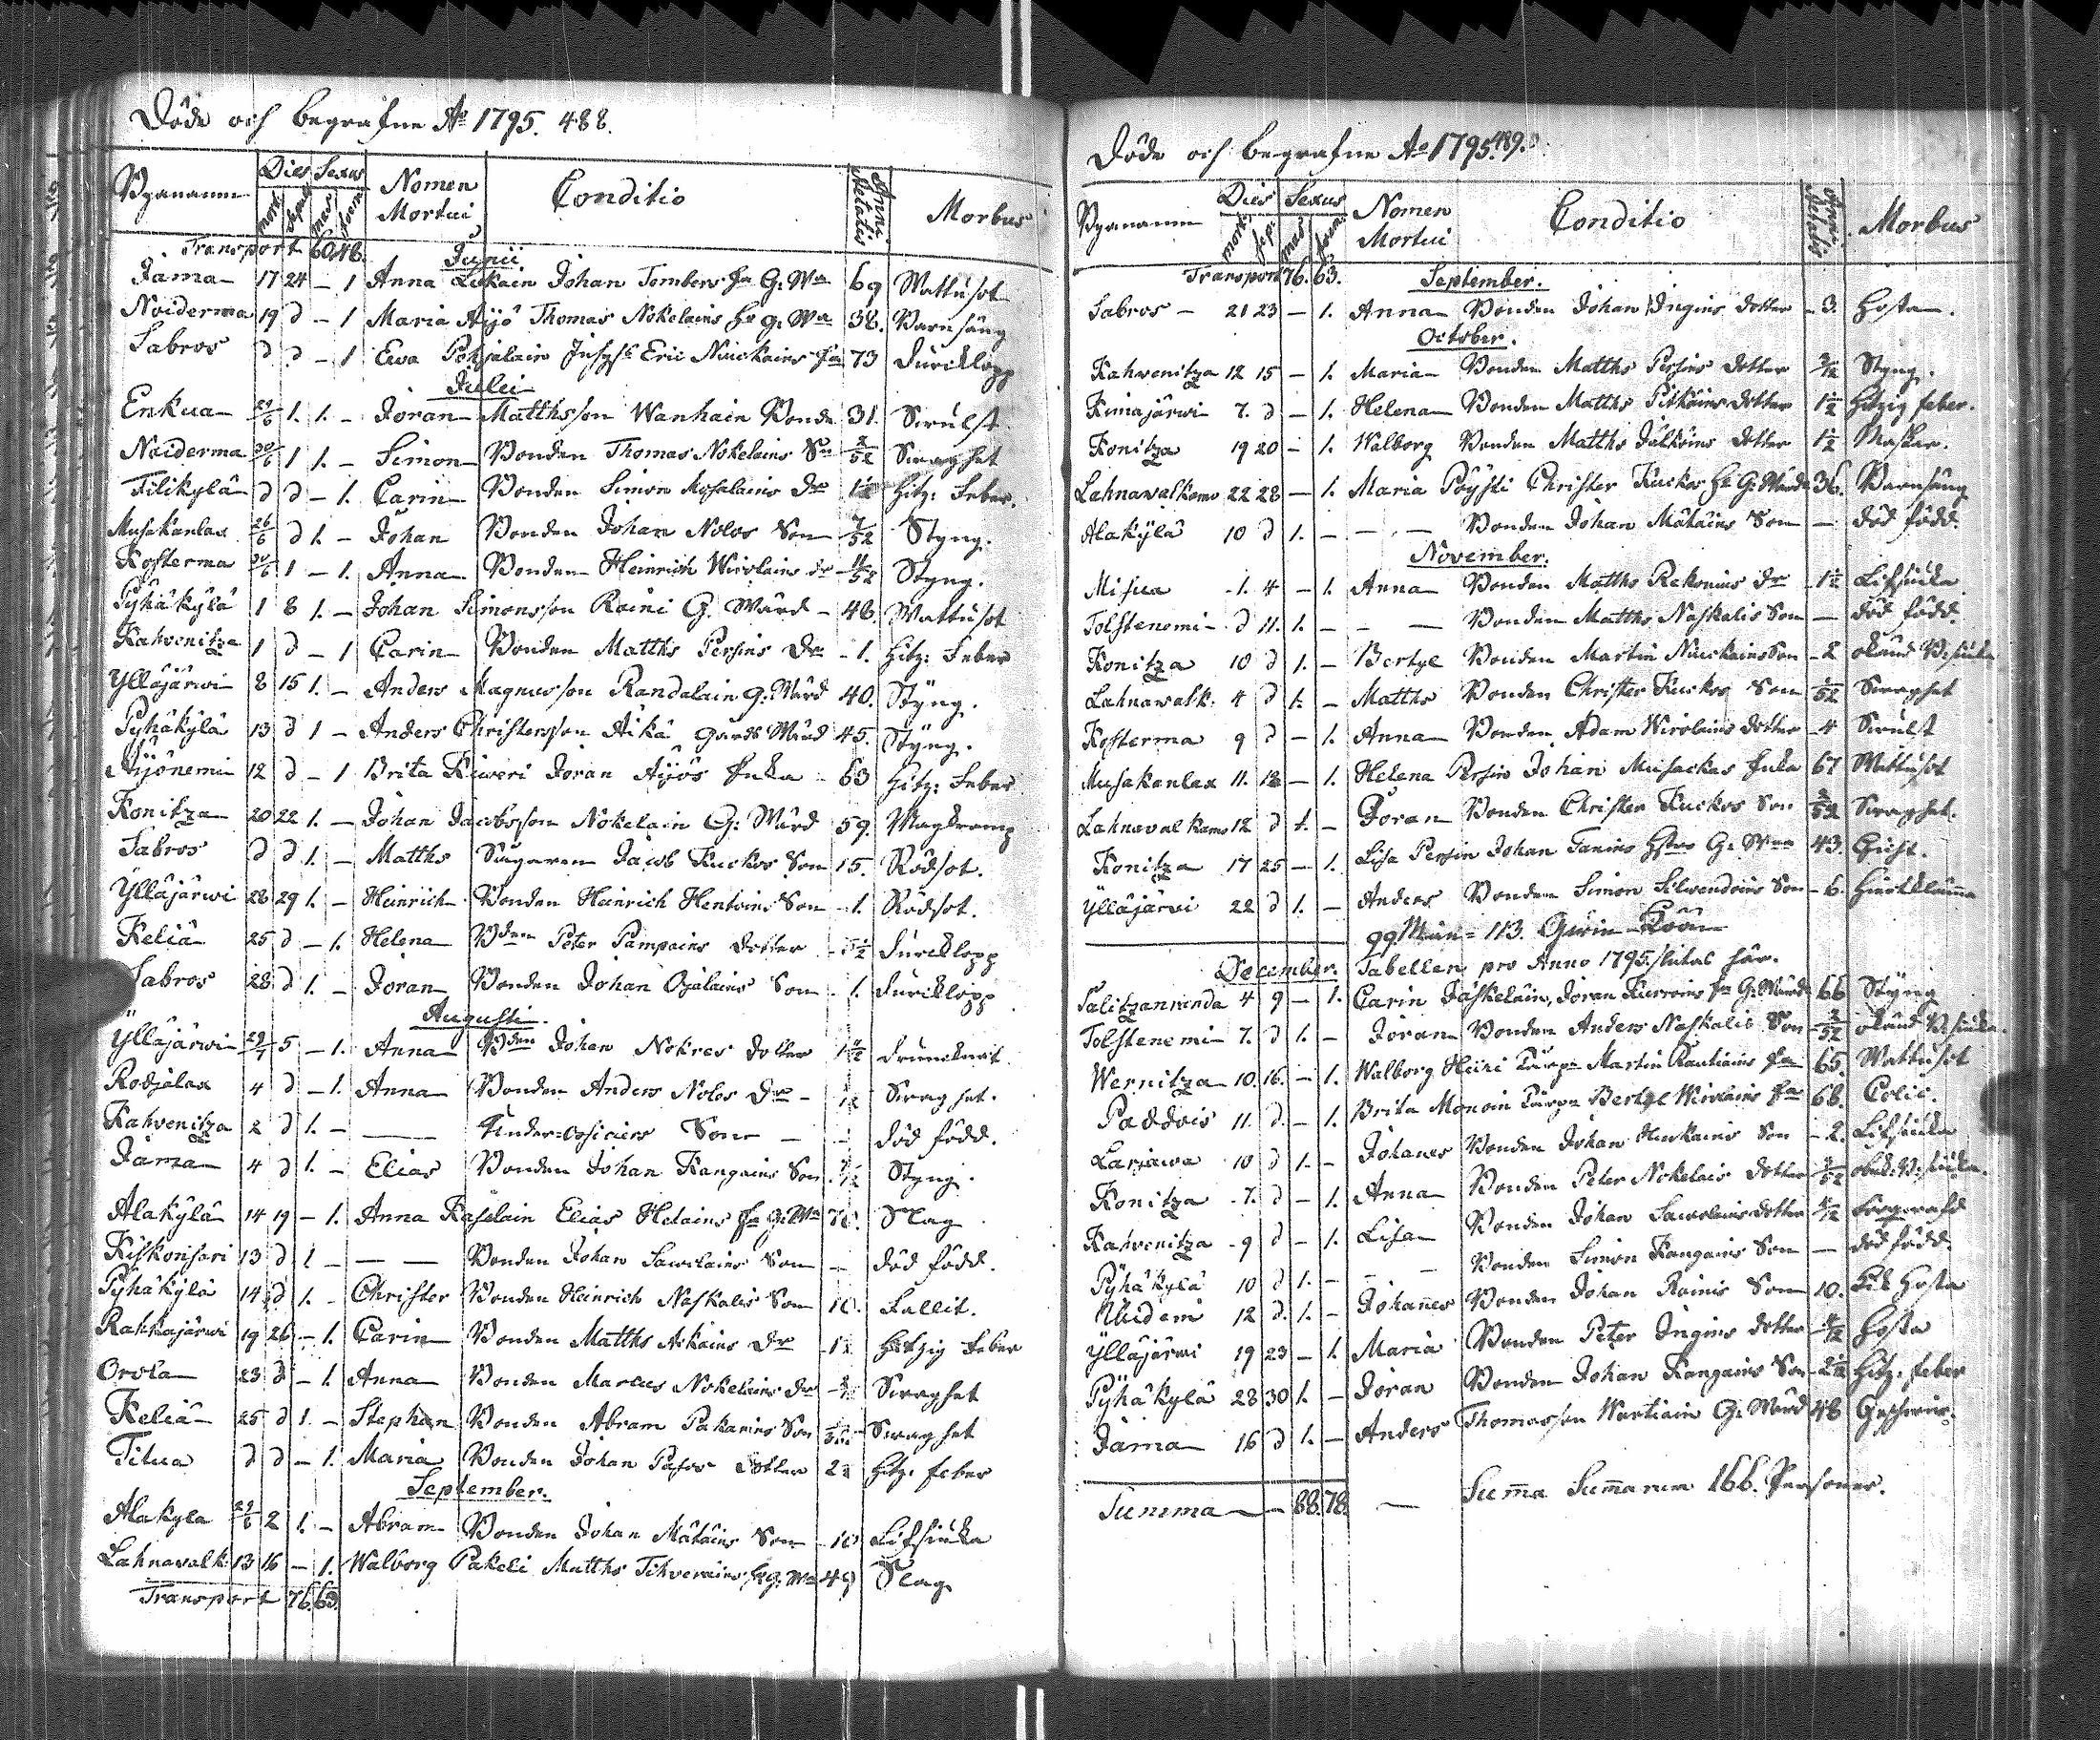 Döde och begrafne Ao 1795. 488.
Bynamn Dies Sexus Nomen Mortui Conditio Anni Aetatis Morbus
mort. sepul. mas foem.
Transport 60. 48. Junii
Jama 17 24 – 1 Anna Johan G: 69 Wattusot
Noiderma 19 d – 1 Maria Äijö Thomas Nokelains G. 38. Barnsäng
Sabros d d – 1 Ewa Eric Nuckains 73 Durcklopp
Julii
Enkua 29/6 1. 1. – Jöran Matthsson Wanhain Bonde 31. Swulst
Noiderma 30/6 1 1. – Simon Bonden Thomas Nokelains Sn 2/52 Swaghet
Tilikylä d d – 1. Carin Bonden Simon Dr 1½ Hitz: Feber.
Musakanlax 26/6 d 1. – Johan Bonden Johan Nolos Son 7/52 Styng.
Kosterma 30/6 1 – 1. Anna Bonden Heinrich Wirolains dr 11/52 Styng.
Pyhäkylä 1 8 1. – Johan Simonsson Raini G. Wärd – 48. Wattusot
Kahvenitza 1 d – 1 Carin Bonden Matths Persins Dr – 1. Hitz: Feber
Ylläjärwi 8 15 1. – Anders Magnusson Randalain G: Wärd 40. Styng.
Pyhäkylä 13 d 1 – Anders Christersson Äikä Gårds Wärd 45. Styng.
Äijönemi 12 d – 1 Brita Kiweri Jöran Äijös Enka – 63 Hitz: Feber
Konitza 20 22 1. – Johan Jacobsson Nokelain G: Wärd 59. Magkramp
Sabros d d 1. – Matths Jacob Kuckos Son 15. Rödsot.
Ylläjärwi 28 29 1. – Heinrich Bonden Heinrich Hentoins Son – 1. Rödsot.
Keliä 25 d – 1. Helena Bden Peter Pampains dotter – 5½ Durcklopp
Sabros 28 d 1. – Jöran Bonden Johan Ojalains Son – 1. Durcklopp
Augusti.
Ylläjärwi 29/7 5 – 1. Anna Bden Johan Nokres dotter Drunknat
Rodjalax 4 d – 1. Anna Bonden Anders Nolos Dr – Swaghet.
Kahvenitza 2 d 1. – — Under-Officiers Son – – död född.
Jama 4 d 1. – Elias Bonden Johan Kangains Son Styng.
Alakylä 14 19 – 1. Anna Elias Helains G: 70. Slag
Kiskonsari 13 d 1 – — — Bonden Johan Sawolains Son – död född.
Pyhäkylä 14 d 1. – Christer Bonden Heinrich Naskalis Son 10. Fallit.
Rahkajärwi 19 26 – 1. Carin Bonden Matths Äikäins Dr – 1½ Hetzig Feber
Orola 23 d – 1. Anna Bonden Marcus Nokelains dr Swaghet
Keliä 25 d 1. – Stephan Bonden Abram Pakarins Son Swaghet
Titua d d – 1. Maria Bonden Johan dotter 2½ Hitz: feber
September.
Alakyla 29/8 2 1. – Abram Bonden Johan Mätäins Son – 10 Lifsiuka
Lahnavalk: 13 16 – 1. Walborg Pakeli Matths Tihverains G: 49 Slag
Transport 76. 63.
Döde och begrafne Ao 1795. 489.
Bynamn Dies Sexus Nomen Mortui Conditio Anni Aetatis Morbus
mort. sep. mas foem.
Transport 76. 63. September.
Sabros – 21 23 – 1. Anna Bonden Johan Ingins dotter – 3. Hosta.
October.
Kahvenitza 12 15 – 1. Maria Bonden Matths Persins dotter Styng.
Kimajärwi 7. d – 1. Helena Bonden Matths Pitkäins dotter 1½ Hitzig feber.
Konitza 19 20 – 1. Walborg Bonden Matths dotter 1½ Maskar.
Lahnawalkamo 22 28 – 1. Maria Pöysti Christer Kuckos G: 36. Barnsäng
Alakylä 10 d 1. – — — Bonden Johan Mätäins Son – död född.
November.
Misua – 1. 4 – 1. Anna Bonden Matths Rekonins dr – 1½ Lifsiuka
Tolstenemi d 11. 1. – — — Bonden Matths Naskalis Son – död född.
Konitza 10 d 1. – Bertgl Bonden Martin Nuckains Son – 2
Lahnawalk. 4 d 1. – Matths Bonden Christer Kuckos Son Swaghet
Kosterma 9 d – 1. Anna Bonden Adam Wirolains dotter – 4 Swulst
Musakanlax 11. 18 – 1. Helena Persin Johan Musackas Enka 67 Wattusot
Lahnavalkamo 12 d 1. – Jöran Bonden Christer Kuckos Son Swaghet.
Konitza 17 25 – 1. Lisa Persin Johan Tanins G: 43. Gickt.
Ylläjärvi 22 d 1. – Anders Bonden Simon Silwendoins Son – 6.
December. Tabellen pro Anno 1795. slutas här.
Salitzanranda 4 9 – 1. Carin Jäskeläin, Jöran G: 66 Styng
Tolstenemi 7. d 1. – Jöran Bonden Anders Naskalis Son
Wernitza 10. 16. – 1. Walborg Heiri Martin Rautiains 65. Wattusot
Paddois 11. d. – 1. Brita Monoin Bertgl Wirolains 68. Colic.
Lariawa 10 d 1. – Johanes Bonden Johan Huckains Son – 2. Lifsiuka
Konitza – 7. d – 1. Anna Bonden Peter Nokelais dotter
Kahvenitza – 9 d – 1. Lisa Bonden Johan Sawolains dotter
Pyhäkylä 10 d 1. – – – Bonden Simon Kangains Son – död född.
Uudemi 12 d. 1. – Johanes Bonden Johan Rainis Son 10. Hosta
Ylläjärwi 19 23 – 1. Maria Bonden Peter Ingins dotter Hosta
Pyhäkylä 28 30 1. – Jöran Bonden Johan Kangains Son – 2½ Hitz: feber
Jama 16 d 1. – Anders Thomasson Wartiain G: Wärd 48
Summa — – 88. 78. — Summa Summarum 166. Personer.